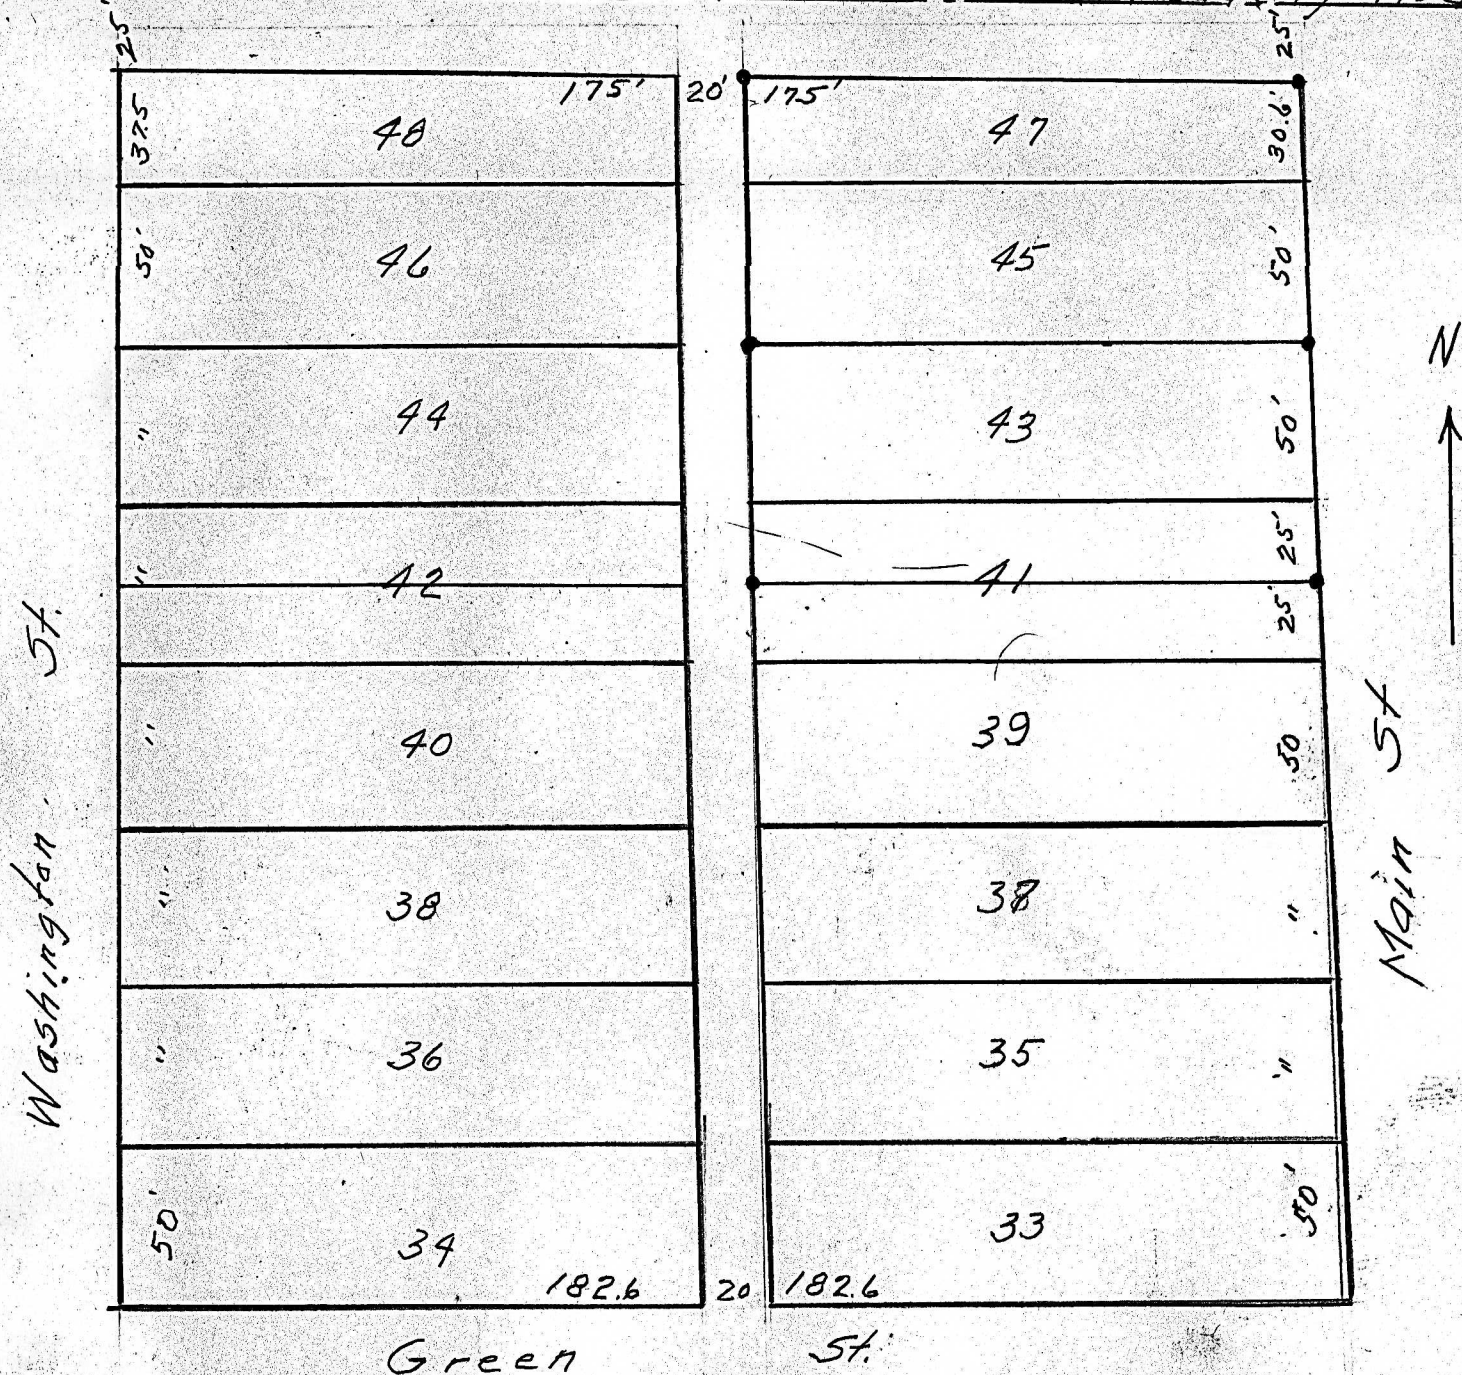 25' 25'
175' 20' 175'
37.5 48 47 30.6'
50' 46 45 50'
" 44 43 50'
25'
" 42 41
25'
" 40 39 50
" 38 37 "
" 36 35 "
50' 34 33 50'
182.6 20 182.6
Washington St.
Main St
N
Green St.